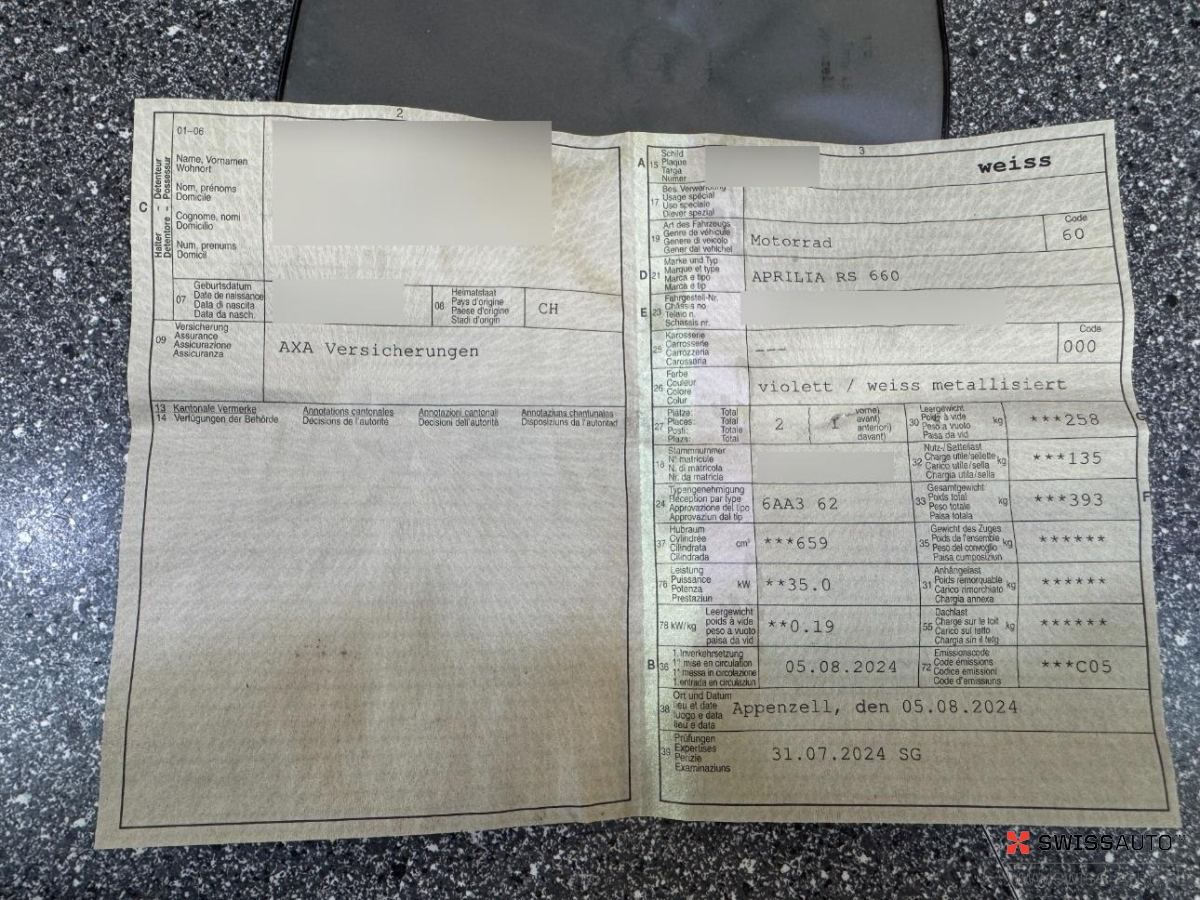 2
01–06
C
Halter – Détenteur
Detentore – Possessur
Name, Vornamen
Wohnort
Nom, prénoms
Domicile
Cognome, nomi
Domicilio
Num, prenums
Domicil
07
Geburtsdatum
Date de naissance
Data di nascita
Data da nasch.
08
Heimatstaat
Pays d'origine
Paese d'origine
Stadi d'origin
CH
09
Versicherung
Assurance
Assicurazione
Assicuranza
AXA Versicherungen
13 Kantonale Vermerke
14 Verfügungen der Behörde
Annotations cantonales
Décisions de l'autorité
Annotazioni cantonali
Decisioni dell'autorità
Annotaziuns chantunalas
Disposiziuns da l'autoritad
3
A 15
Schild
Plaque
Targa
Numer
weiss
17
Bes. Verwendung
Usage spécial
Uso speciale
Diever spezial
19
Art des Fahrzeugs
Genre de véhicule
Genere di veicolo
Gener dal vehichel
Motorrad
Code
60
D 21
Marke und Typ
Marque et type
Marca e tipo
Marca e tip
APRILIA RS 660
E 23
Fahrgestell-Nr.
Châssis no
Telaio n.
Schassis nr.
25
Karosserie
Carrosserie
Carrozzeria
Carossaria
---
Code
000
26
Farbe
Couleur
Colore
Colur
violett / weiss metallisiert
27
Plätze: Total
Places: Total
Posti: Totale
Plazs: Total
2 ( 1
vorne)
avant)
anteriori)
davant)
30
Leergewicht
Poids à vide
Peso a vuoto
Paisa da vid
kg
***258
18
Stammnummer
N° matricule
N. di matricola
Nr. da matricla
32
Nutz-/Sattellast
Charge utile/sellette
Carico utile/sella
Chargia utila/sella
kg
***135
24
Typengenehmigung
Réception par type
Approvazione del tipo
Approvaziun dal tip
6AA3 62
33
Gesamtgewicht
Poids total
Peso totale
Paisa totala
kg
***393
F
37
Hubraum
Cylindrée
Cilindrata
Cilindrada
cm³
***659
35
Gewicht des Zuges
Poids de l'ensemble
Peso del convoglio
Paisa cumposiziun
kg
******
76
Leistung
Puissance
Potenza
Prestaziun
kW
**35.0
31
Anhängelast
Poids remorquable
Carico rimorchiato
Chargia annexa
kg
******
78 kW/kg
Leergewicht
poids à vide
peso a vuoto
paisa da vid
**0.19
55
Dachlast
Charge sur le toit
Carico sul tetto
Chargia sin il tetg
kg
******
B 36
1. Inverkehrsetzung
1re mise en circulation
1a messa in circolazione
1. entrada en circulaziun
05.08.2024
72
Emissionscode
Code émissions
Codice emissioni
Code d'emissiuns
***C05
38
Ort und Datum
lieu et date
luogo e data
lieu e data
Appenzell, den 05.08.2024
39
Prüfungen
Expertises
Perizie
Examinaziuns
31.07.2024 SG
SWISSAUTO